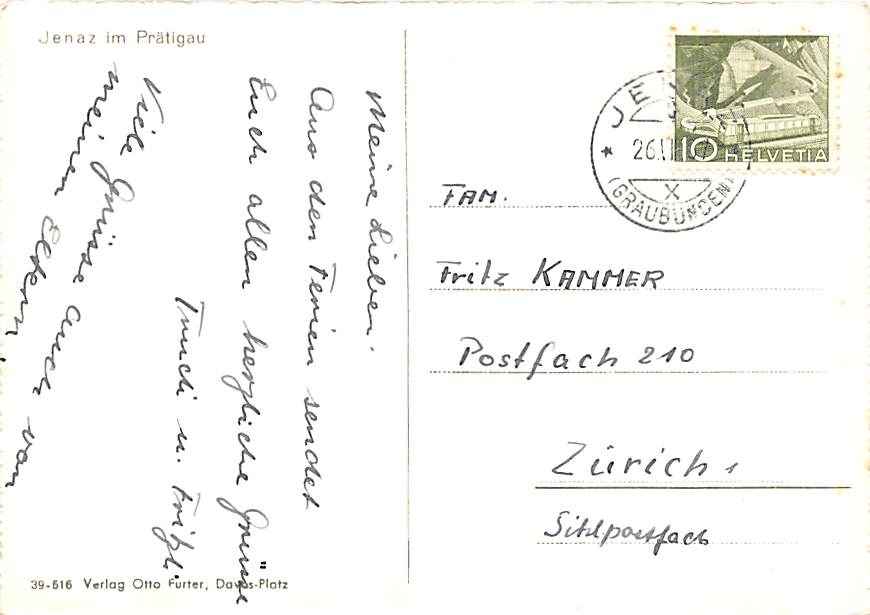 Jenaz im Prätigau
Meine Lieben.
Aus den Ferien sendet
Euch allen herzliche Grüsse
Truedi u. Fritzli.
Viele Grüsse auch von
meinen Eltern
39-516 Verlag Otto Furter, Davos-Platz
10 HELVETIA
(GRAUBÜNDEN)
X
FAM.
Fritz KAMMER
Postfach 210
Zürich 1
Sihlpostfach